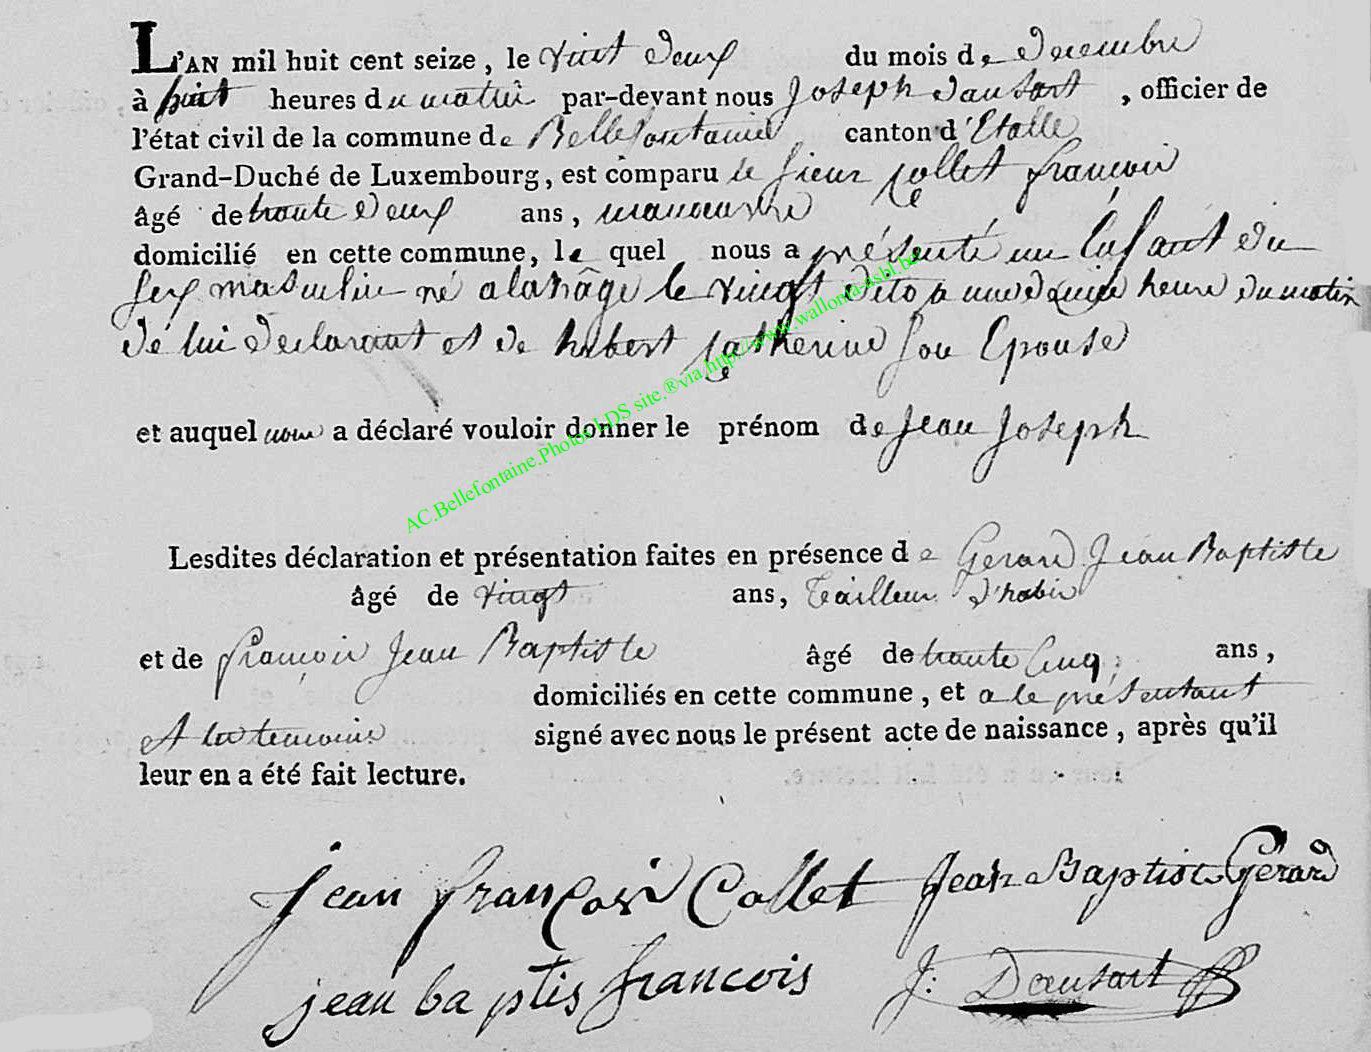 L'AN mil huit cent seize, le vint deux du mois de decembre
à huit heures du matin par-devant nous Joseph dausart, officier de
l'état civil de la commune de Bellefontaine canton d'Etalle
Grand-Duché de Luxembourg, est comparu le sieur Collet françois
âgé de trante deux ans, manouvre
domicilié en cette commune, le quel nous a présenté un Enfant du
sex masculin né a le vingt dito a une heure du matin
de lui declarant et de hubert Catherine son Epouse
et auquel nous a déclaré vouloir donner le prénom de Jean Joseph
AC.Bellefontaine.Photos LDS site.®via.http://www.wallonia-asbl.be
Lesdites déclaration et présentation faites en présence de Gerard Jean Baptiste
âgé de vingt ans, tailleur d'habis
et de françois Jean Baptiste âgé de trante Cinq ans,
domiciliés en cette commune, et a le présentant
et les temoins signé avec nous le présent acte de naissance, après qu'il
leur en a été fait lecture.
jean françois Collet Jean Baptiste Gérard
jean baptis francois J: Dausart